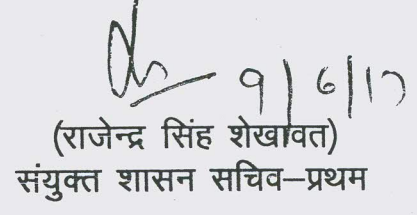 9/6/17
(राजेन्द्र सिंह शेखावत)
संयुक्त शासन सचिव–प्रथम